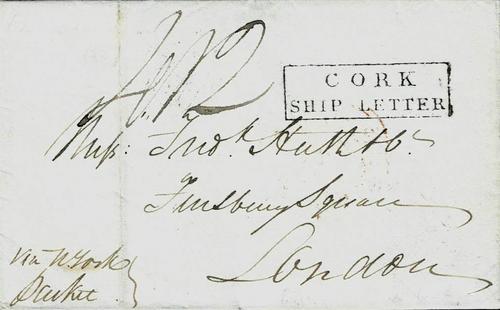 4/12
CORK
SHIP LETTER
Messs: Fredk Huth & Co
Finsbury Square
London
via N York
Packet